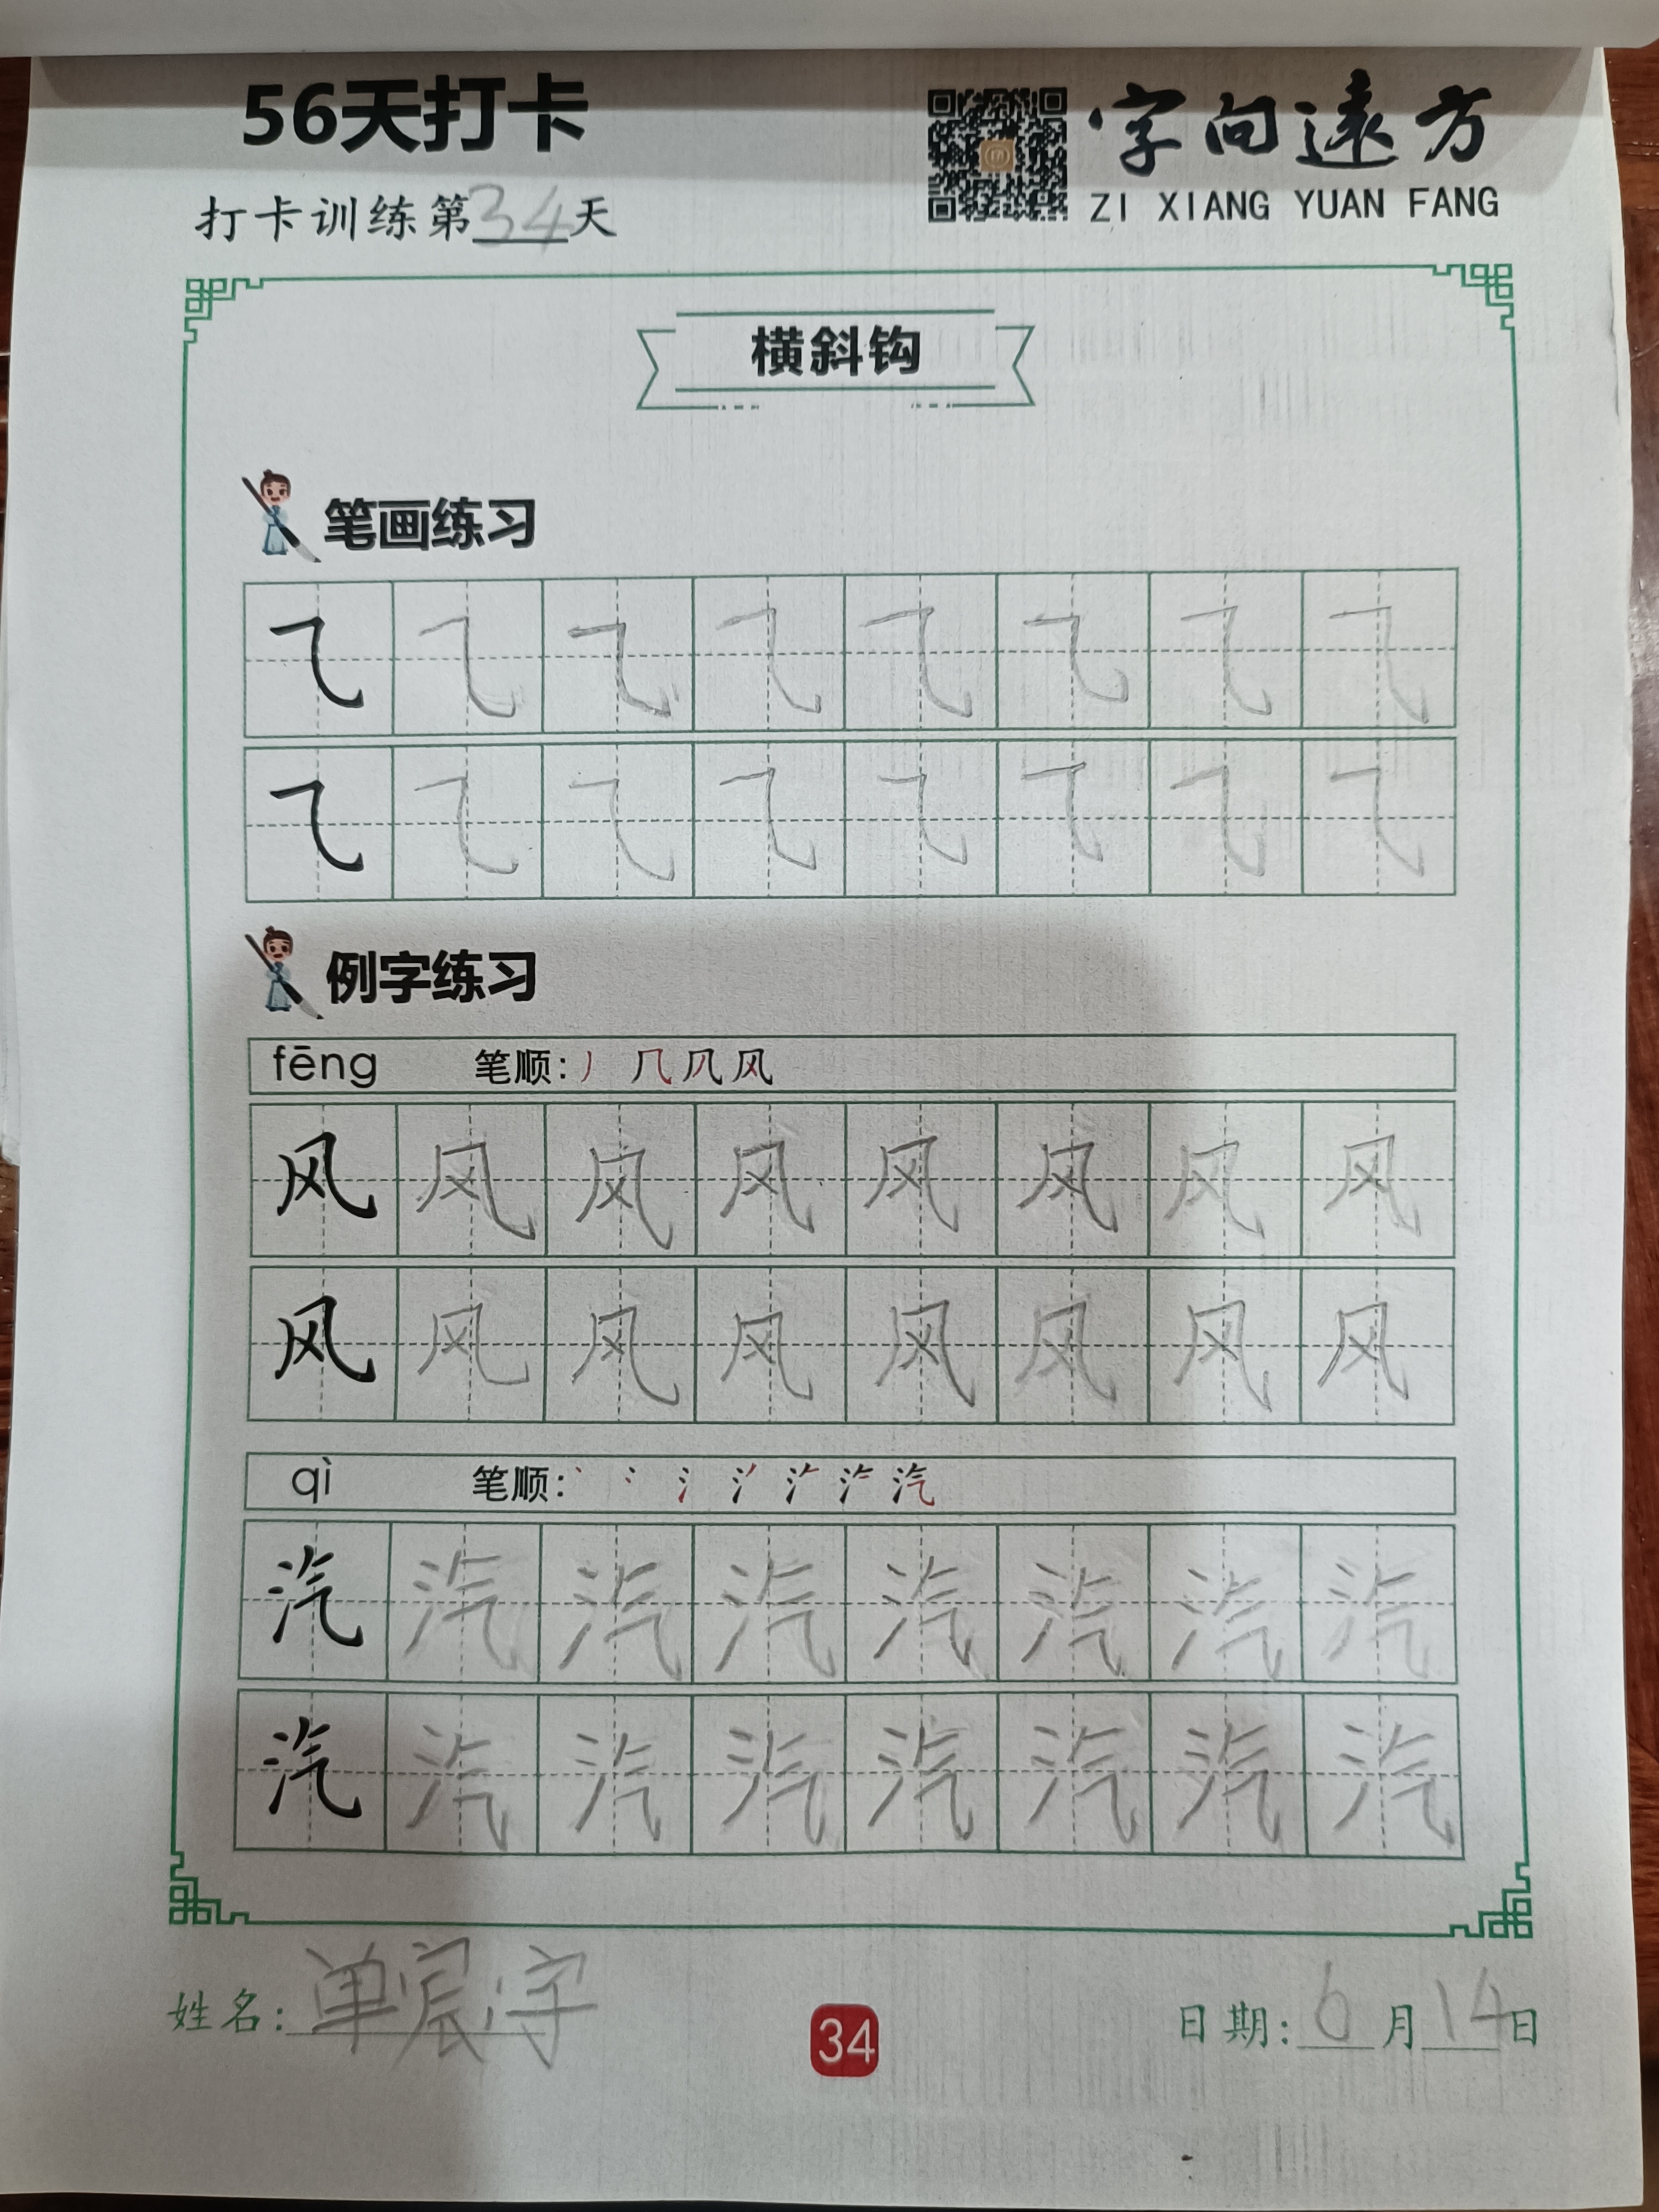 56天打卡
字向遠方
ZI XIANG YUAN FANG
打卡训练第34天
横斜钩
笔画练习
㇈ ㇈ ㇈ ㇈ ㇈ ㇈ ㇈ ㇈
㇈ ㇈ ㇈ ㇈ ㇈ ㇈ ㇈ ㇈
例字练习
fēng 笔顺: 丿 几 凤 风
风 风 风 风 风 风 风 风
风 风 风 风 风 风 风 风
qì 笔顺: 汽
汽 汽 汽 汽 汽 汽 汽 汽
汽 汽 汽 汽 汽 汽 汽 汽
姓名: 单宸宇
34
日期: 6月14日